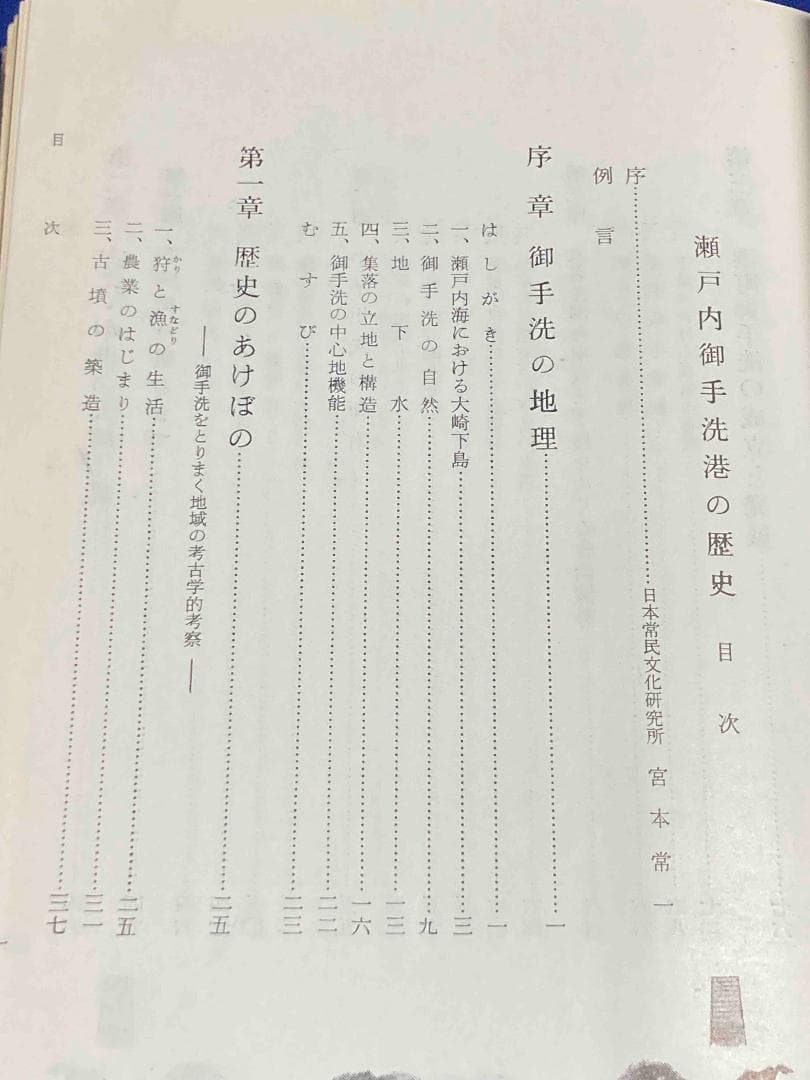 瀬戸内御手洗港の歴史　目次
序……………………日本常民文化研究所　宮本常一
例言
序章　御手洗の地理……………………一
はしがき……………………一
一、瀬戸内海における大崎下島……………………三
二、御手洗の自然……………………九
三、地下水……………………一三
四、集落の立地と構造……………………一六
五、御手洗の中心地機能……………………二二
むすび……………………二三
第一章　歴史のあけぼの……………………二五
――御手洗をとりまく地域の考古学的考察――
一、狩(かり)と漁(すなどり)の生活……………………二五
二、農業のはじまり……………………三一
三、古墳の築造……………………三七
目次